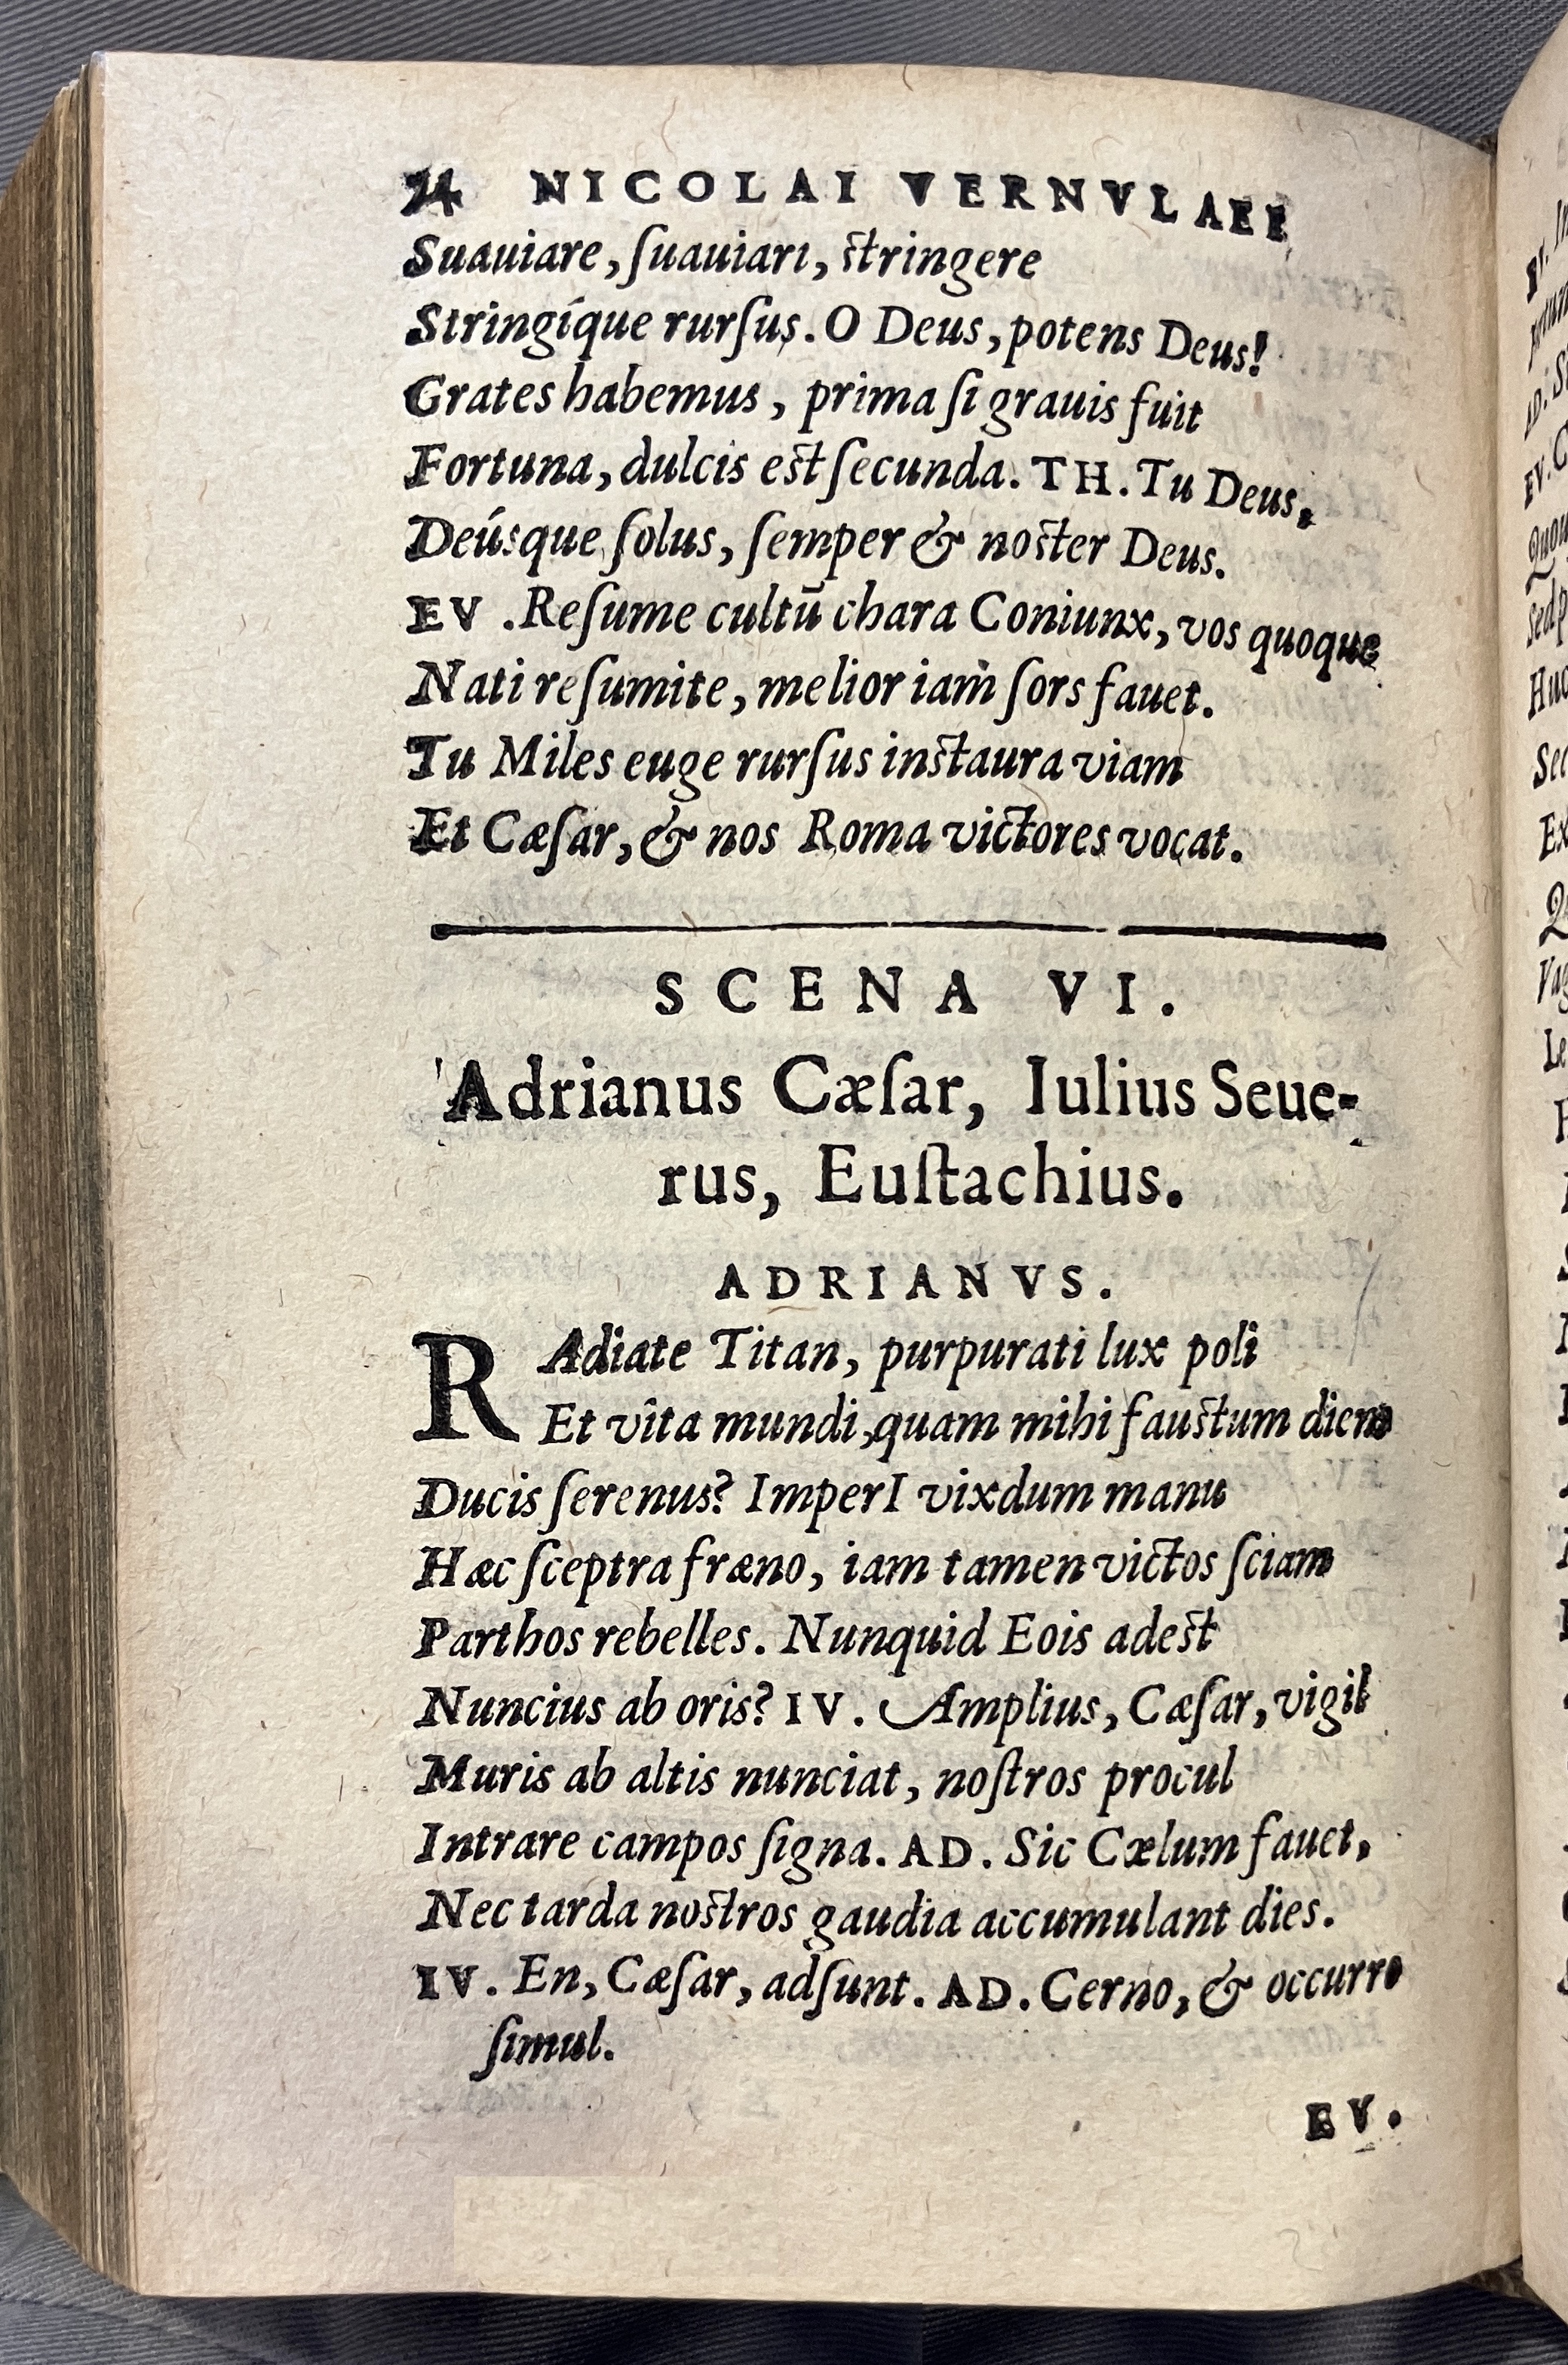 24 NICOLAI VERNVLAEI
Suauiare, ſuauiari, ſtringere
Stringíque rurſus. O Deus, potens Deus!
Grates habemus, prima ſi grauis fuit
Fortuna, dulcis eſt ſecunda. TH. Tu Deus,
Deúsque ſolus, ſemper & noſter Deus.
EV. Reſume cultū chara Coniunx, vos quoque
Nati reſumite, melior iam ſors fauet.
Tu Miles euge rurſus inſtaura viam
Et Cæſar, & nos Roma victores vocat.
SCENA VI.
Adrianus Cæſar, Iulius Seue-
rus, Euſtachius.
ADRIANVS.
RAdiate Titan, purpurati lux poli
Et vita mundi, quam mihi fauſtum diem
Ducis ſerenus? ImperI vixdum manu
Hæc ſceptra fræno, iam tamen victos ſciam
Parthos rebelles. Nunquid Eois adeſt
Nuncius ab oris? IV. Amplius, Cæſar, vigil
Muris ab altis nunciat, noſtros procul
Intrare campos ſigna. AD. Sic Cælum fauet,
Nec tarda noſtros gaudia accumulant dies.
IV. En, Cæſar, adſunt. AD. Cerno, & occurro
ſimul.
EV.